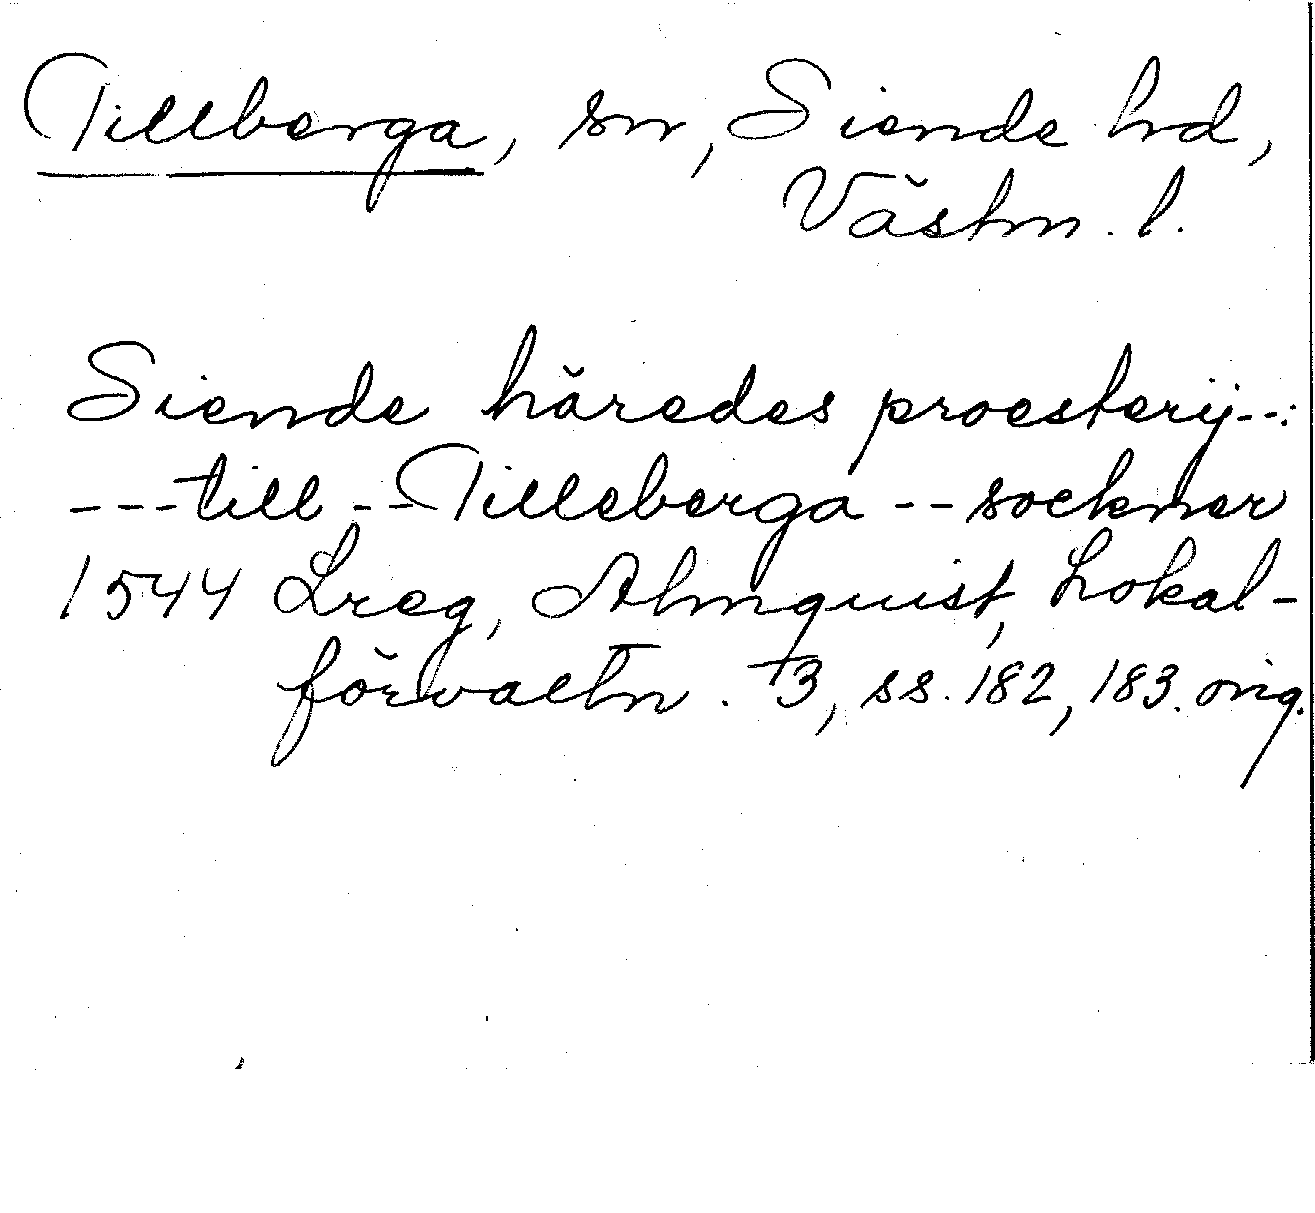 Tillberga, sn, Siende hrd,
Västm. l.
Siende häredes proesterij--:
---till--Tilleberga--sockner
1544 Lreg, Almquist, Lokal-
förvaltn. 3, ss. 182, 183. orig.